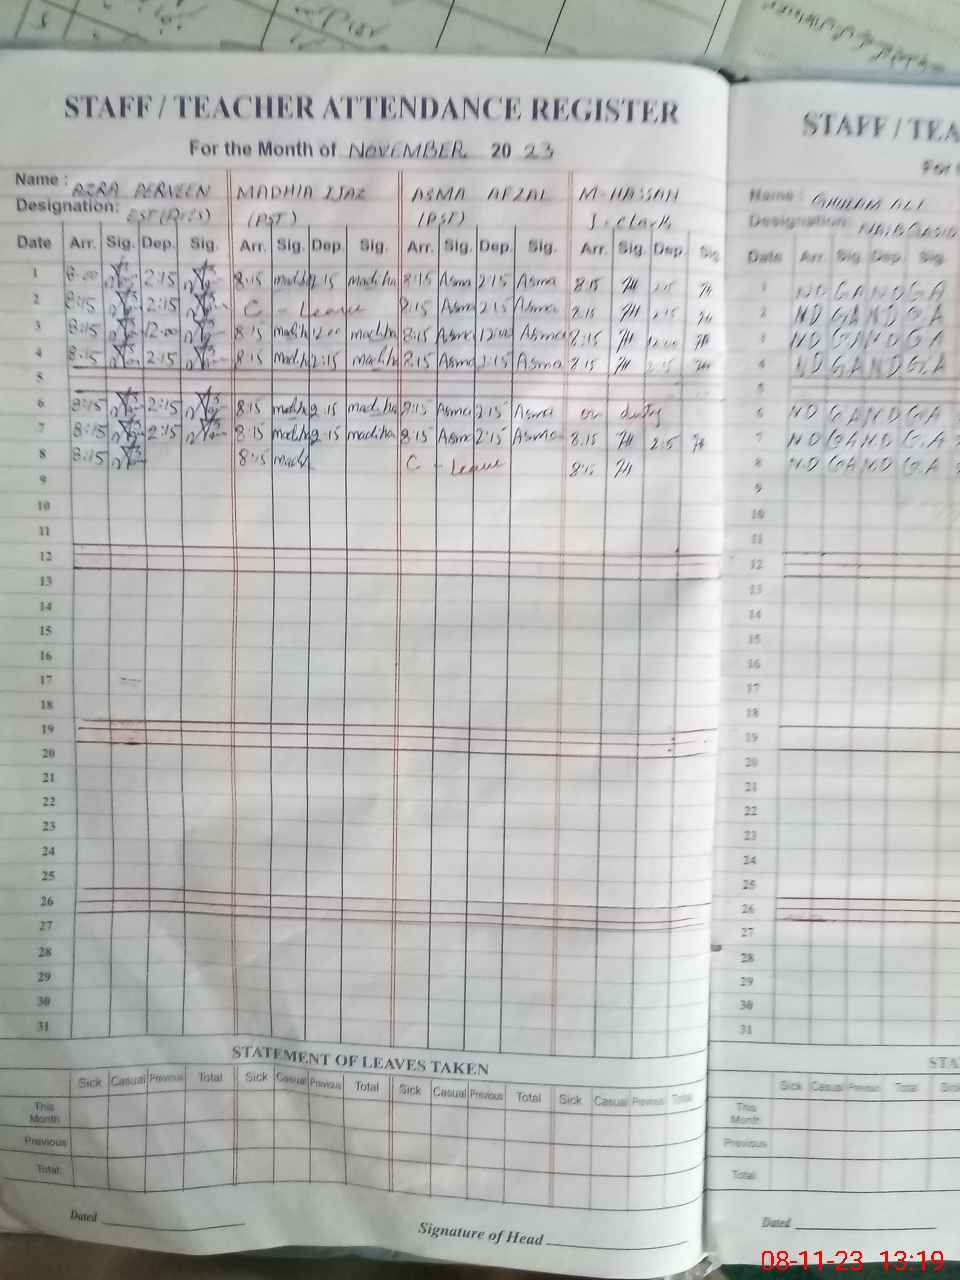 STAFF / TEACHER ATTENDANCE REGISTER
For the Month of NOVEMBER 20 23
Name : AZRA PERVEEN MADHIA IJAZ ASMA AFZAL M-HASSAN
Designation: (PST) (PST) J-Clerk
Date Arr. Sig. Dep. Sig. Arr. Sig. Dep. Sig. Arr. Sig. Dep. Sig. Arr. Sig. Dep. Sig
1 8:00 2:15 8:15 madiha 2:15 madiha 8:15 Asma 2:15 Asma 8:15 2:15
2 8:15 2:15 C - Leave 8:15 Asma 2:15 Asma 8:15 2:15
3 8:15 12:00 8:15 madiha 12:00 madiha 8:15 Asma 12:00 Asma 8:15 12:00
4 8:15 2:15 8:15 madiha 2:15 madiha 8:15 Asma 2:15 Asma 8:15 2:15
5
6 8:15 2:15 8:15 madiha 2:15 madiha 8:15 Asma 2:15 Asma on duty
7 8:15 2:15 8:15 madiha 2:15 madiha 8:15 Asma 2:15 Asma 8:15 2:15
8 8:15 8:15 madi C - Leave 8:15
9
10
11
12
13
14
15
16
17
18
19
20
21
22
23
24
25
26
27
28
29
30
31
STATEMENT OF LEAVES TAKEN
Sick Casual Previous Total Sick Casual Previous Total Sick Casual Previous Total Sick Casual Previous Total
This Month
Previous
Total
Dated
Signature of Head
STAFF / TEA
For
Name : GHULAM ALI
Designation: NAIB QASID
Date Arr. Sig. Dep. Sig.
1 ND GA ND G.A
2 ND GA ND G.A
3 ND GA ND G.A
4 ND GA ND G.A
5
6 ND GA ND GA
7 ND GA ND G.A
8 ND GA ND G.A
9
10
11
12
13
14
15
16
17
18
19
20
21
22
23
24
25
26
27
28
29
30
31
STA
Sick Casual Previous Total
This Month
Previous
Total
Dated
08-11-23 13:19